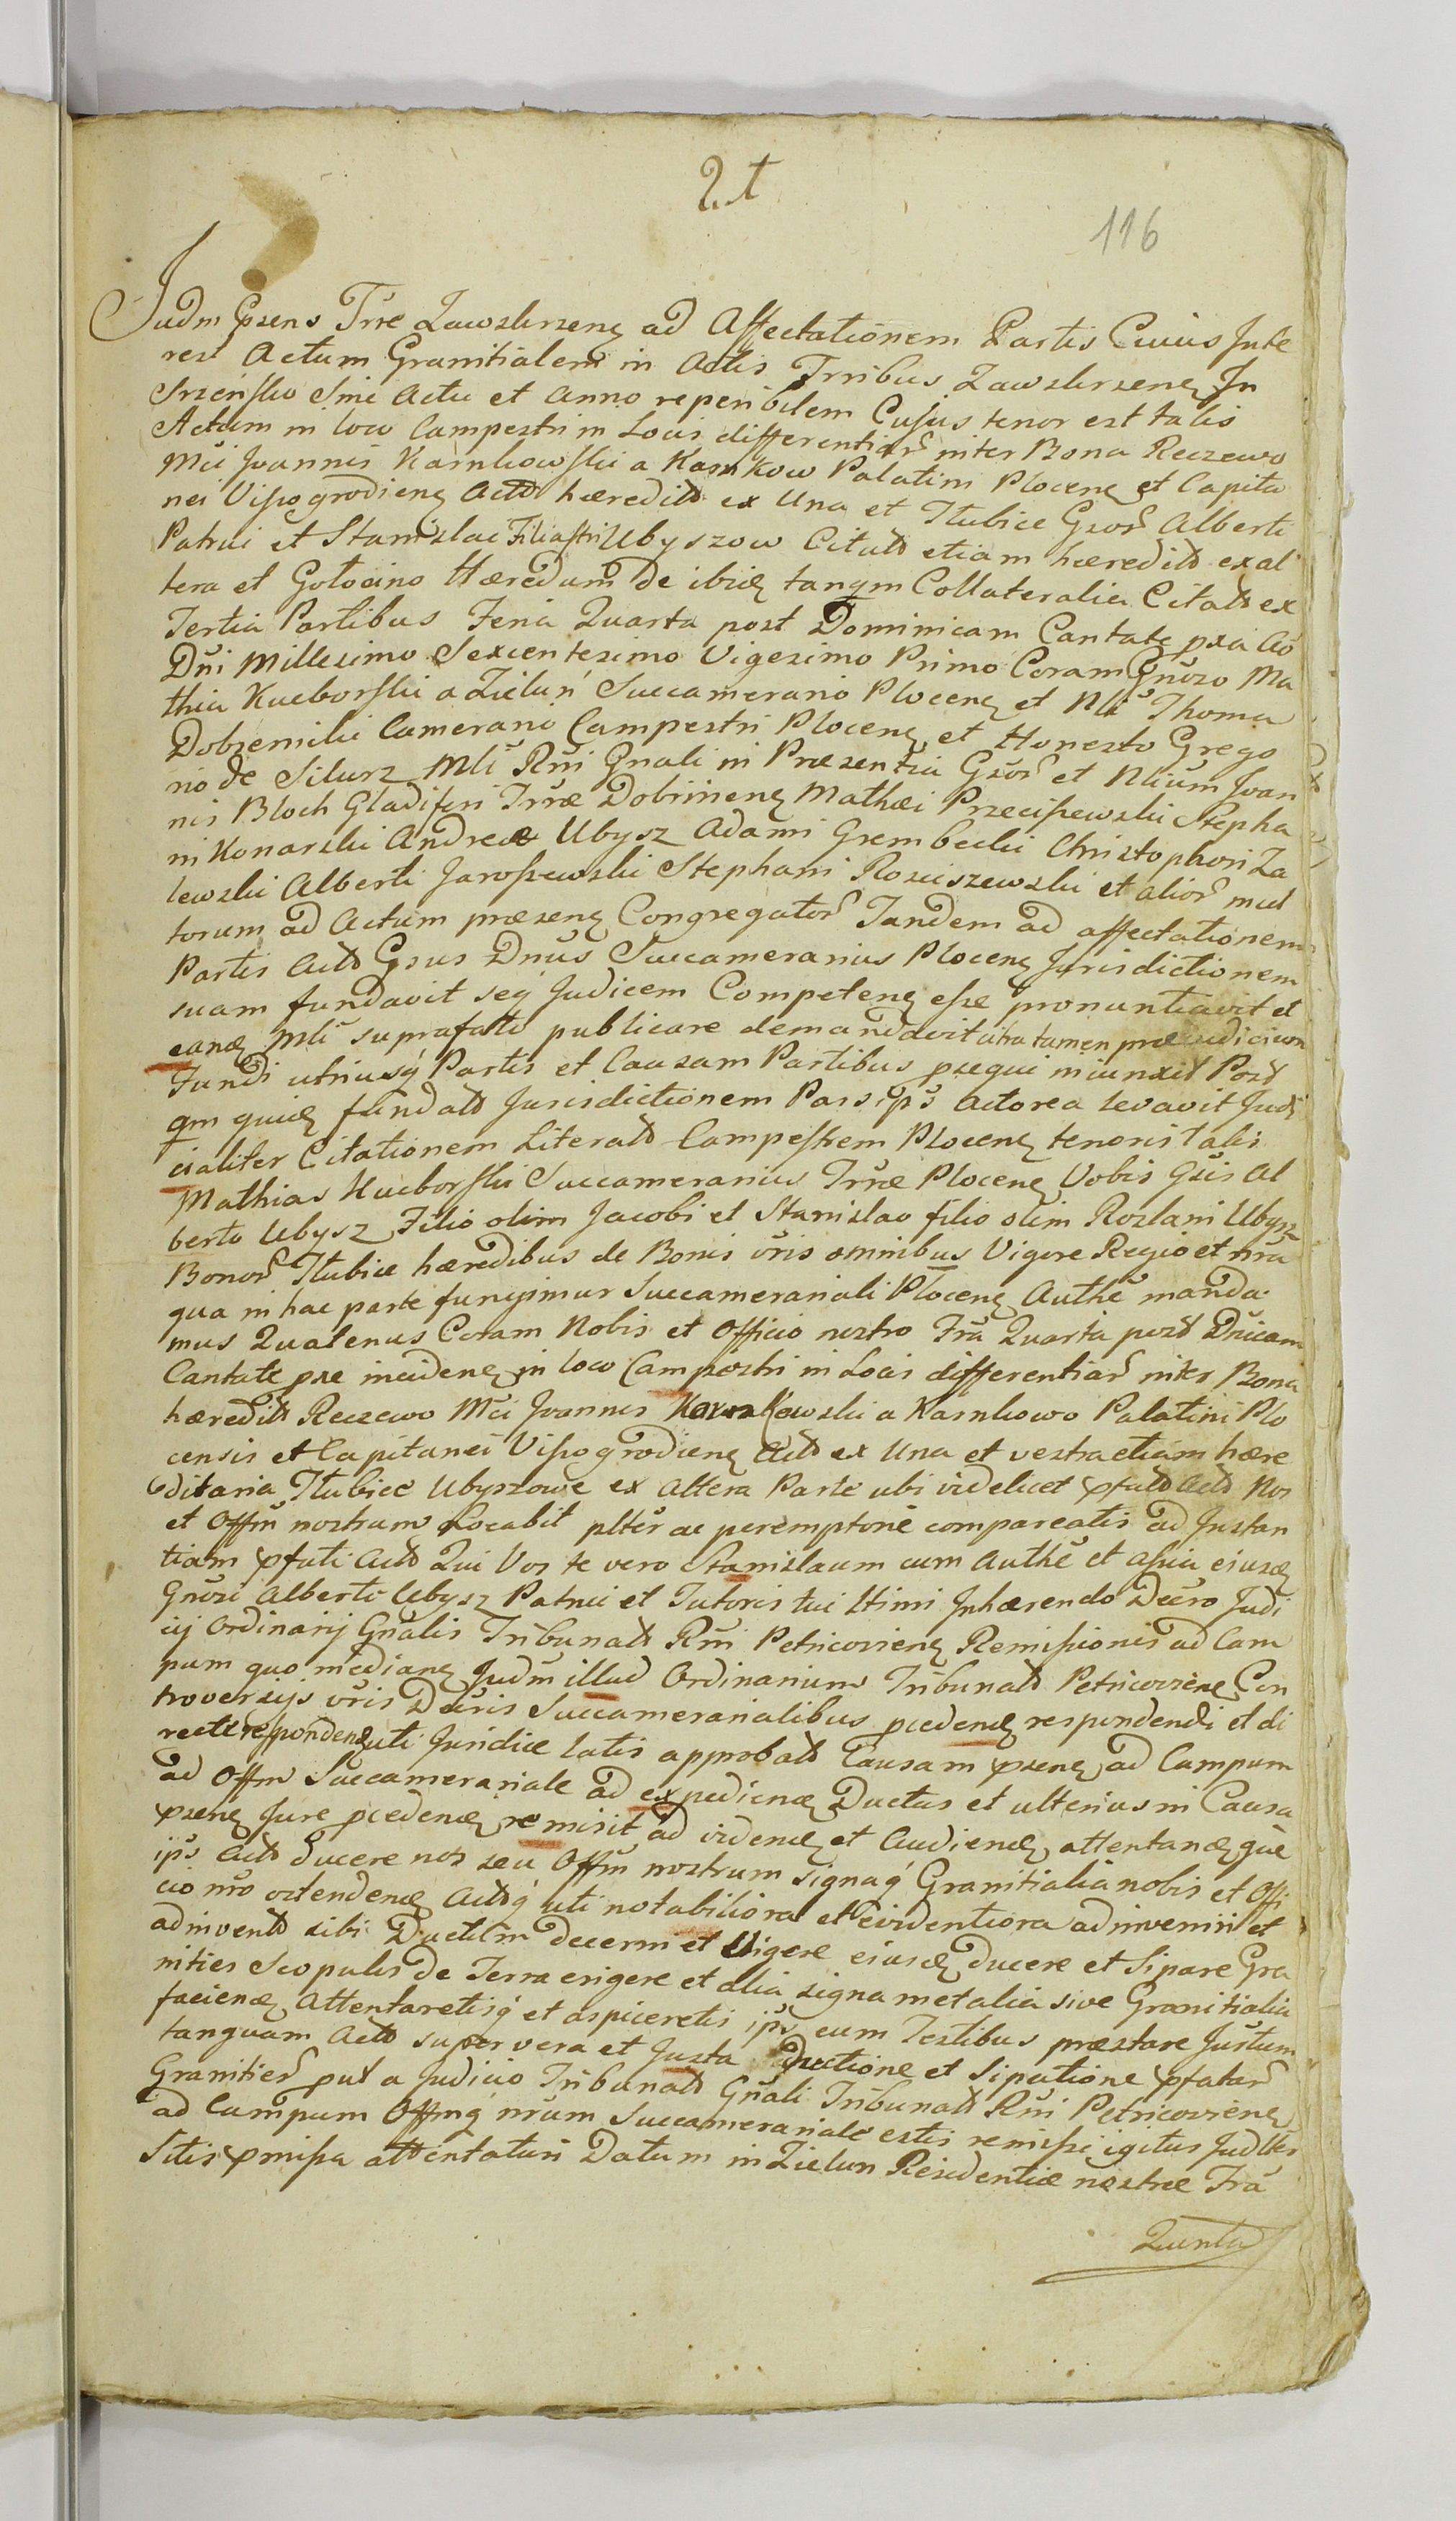 2.t
116
Judm Psens Trre Zawskrzeng ad Affectationem Partis Cuius Inte
rest Actum Granitialem in Actis Trribus Zawskrzeng In
Srzensko Smi Actu et Anno reperibilem Cujus tenor est talis
Actum in loco Campestri in Locis differentiar inter Bona Reczewo
Mci Joannis Karnkowski a Karnkow Palatini Ploceng et Capita
nei Visogrodieng Acto hæredito ex Una et Itubice Gsor Alberti
Patrui et Stanislai Filiastri Ubyszow Citato etiam hæredito ex al
tera et Gotocino Hæredum de ibid tanqm Collateralia Citato ex
Tertia Partibus Feria Quarta post Dominicam Cantate pxa Ao
Dni Millesimo Sexcentesimo Vigesimo Primo Coram Gnozo Ma
thia Kucborski a Zielun Succamerario Ploceng et Nli Thoma
Dobrzenicki Camerario Campestri Ploceng et Honesto Grego
rio de Silurz Mli Rni Gnali in Præsentia Gsor et Nlium Joan
nis Bloch Gladiferi Trræ Dobrineng Mathæi Przeciszewski Stepha
ni Konarski Andreæ Ubysz Adami Grembecki Christophori Za
lewski Alberti Jaroszewski Stephani Rosciszewski et alior mul
torum ad Actum præseng Congregator Tandem ad affectationem
Partis Acto Gsus Dnus Succamerarius Ploceng Jurisdictionem
suam fundavit seq Judicem Competeng esse pronuntiavit et
eand Mli suprafato publicare demandavit citra tamen præjudicium
Fundi utriusq Partis et Causam Partibus psequi iniunxit Post
qm quid fundato Jurisdictionem Pars ips Actorea levavit Judi
cialiter Citationem Literato Campestrem Ploceng tenoris talis
Mathias Kucborski Succamerarius Trræ Ploceng Vobis Gsis Al
berto Ubysz Filio olim Jacobi et Stanislao filio olim Roslani Ubysz
Bonor Itubice hæredibus de Bonis vris omnibus Vigore Regio et nra
qua in hac parte fungimur Succamerariali Ploceng Authe manda
mus Quatenus Coram Nobis et Officio nostro Fra Quarta post Dnicam
Cantate pxe incideng in loco Campestri in Locis differentiar inter Bona
hæredito Reczewo Mci Joannis Karnkowski a Karnkowo Palatini Plo
censis et Capitanei Visogrodieng Acto ex Una et vestra etiam hære
ditaria Itubice Ubyszowe ex Altera Parte ubi videlicet pfato Acto Nos
et Offm nostrum Locabit plter ac peremptorie compareatis ad Instan
tiam pfati Acto Qui Vos te vero Stanislaum cum Authe et assia eiusd
Gnosi Alberti Ubysz Patrui et Tutoris tui ltimi Inhærendo Decro Judi
cij Ordinarij Gnalis Tribunato Rni Petricovieng Remissionis ad Cam
pum quo mediang Judm illud Ordinarium Tribunato Petricovieng Con
troversijs vris Decris Succamerarialibus pcedend respondendi et di
recte respondeng uti Juridice latis approbato Causam pseng ad Campum
ad Offm Succamerariale ad expediend Ductus et ulterius in Causa
pseng Jure pcedend remisit ad videnc et Audiend attentand que
ips Acto ducere nos seu Offm nostrum signaq Granitialia nobis et Offi
cio nro ostendend Actoq uti notabiliora et evidentiora adinveniri et
adinvento sibi Ductum decerni et Vigore eiusd ducere et Sipare Gra
nities Scopulis de Terra erigere et alia signa metalia sive Granitialia
faciend Attentaretisq et aspiceretis ips cum Testibus præstare Justum
tanquam Acto super vera et Justa ductione et Sipatione pfatar
Granitier put a Judicio Tribunato Gnali Tribunato Rni Petricovieng
ad Campum Offmq nrum Succamerariale estis remissi igitur Judlter
Sitis pmissa attentaturi Datum in Zielun Residentiæ nostræ Fra
Quinta